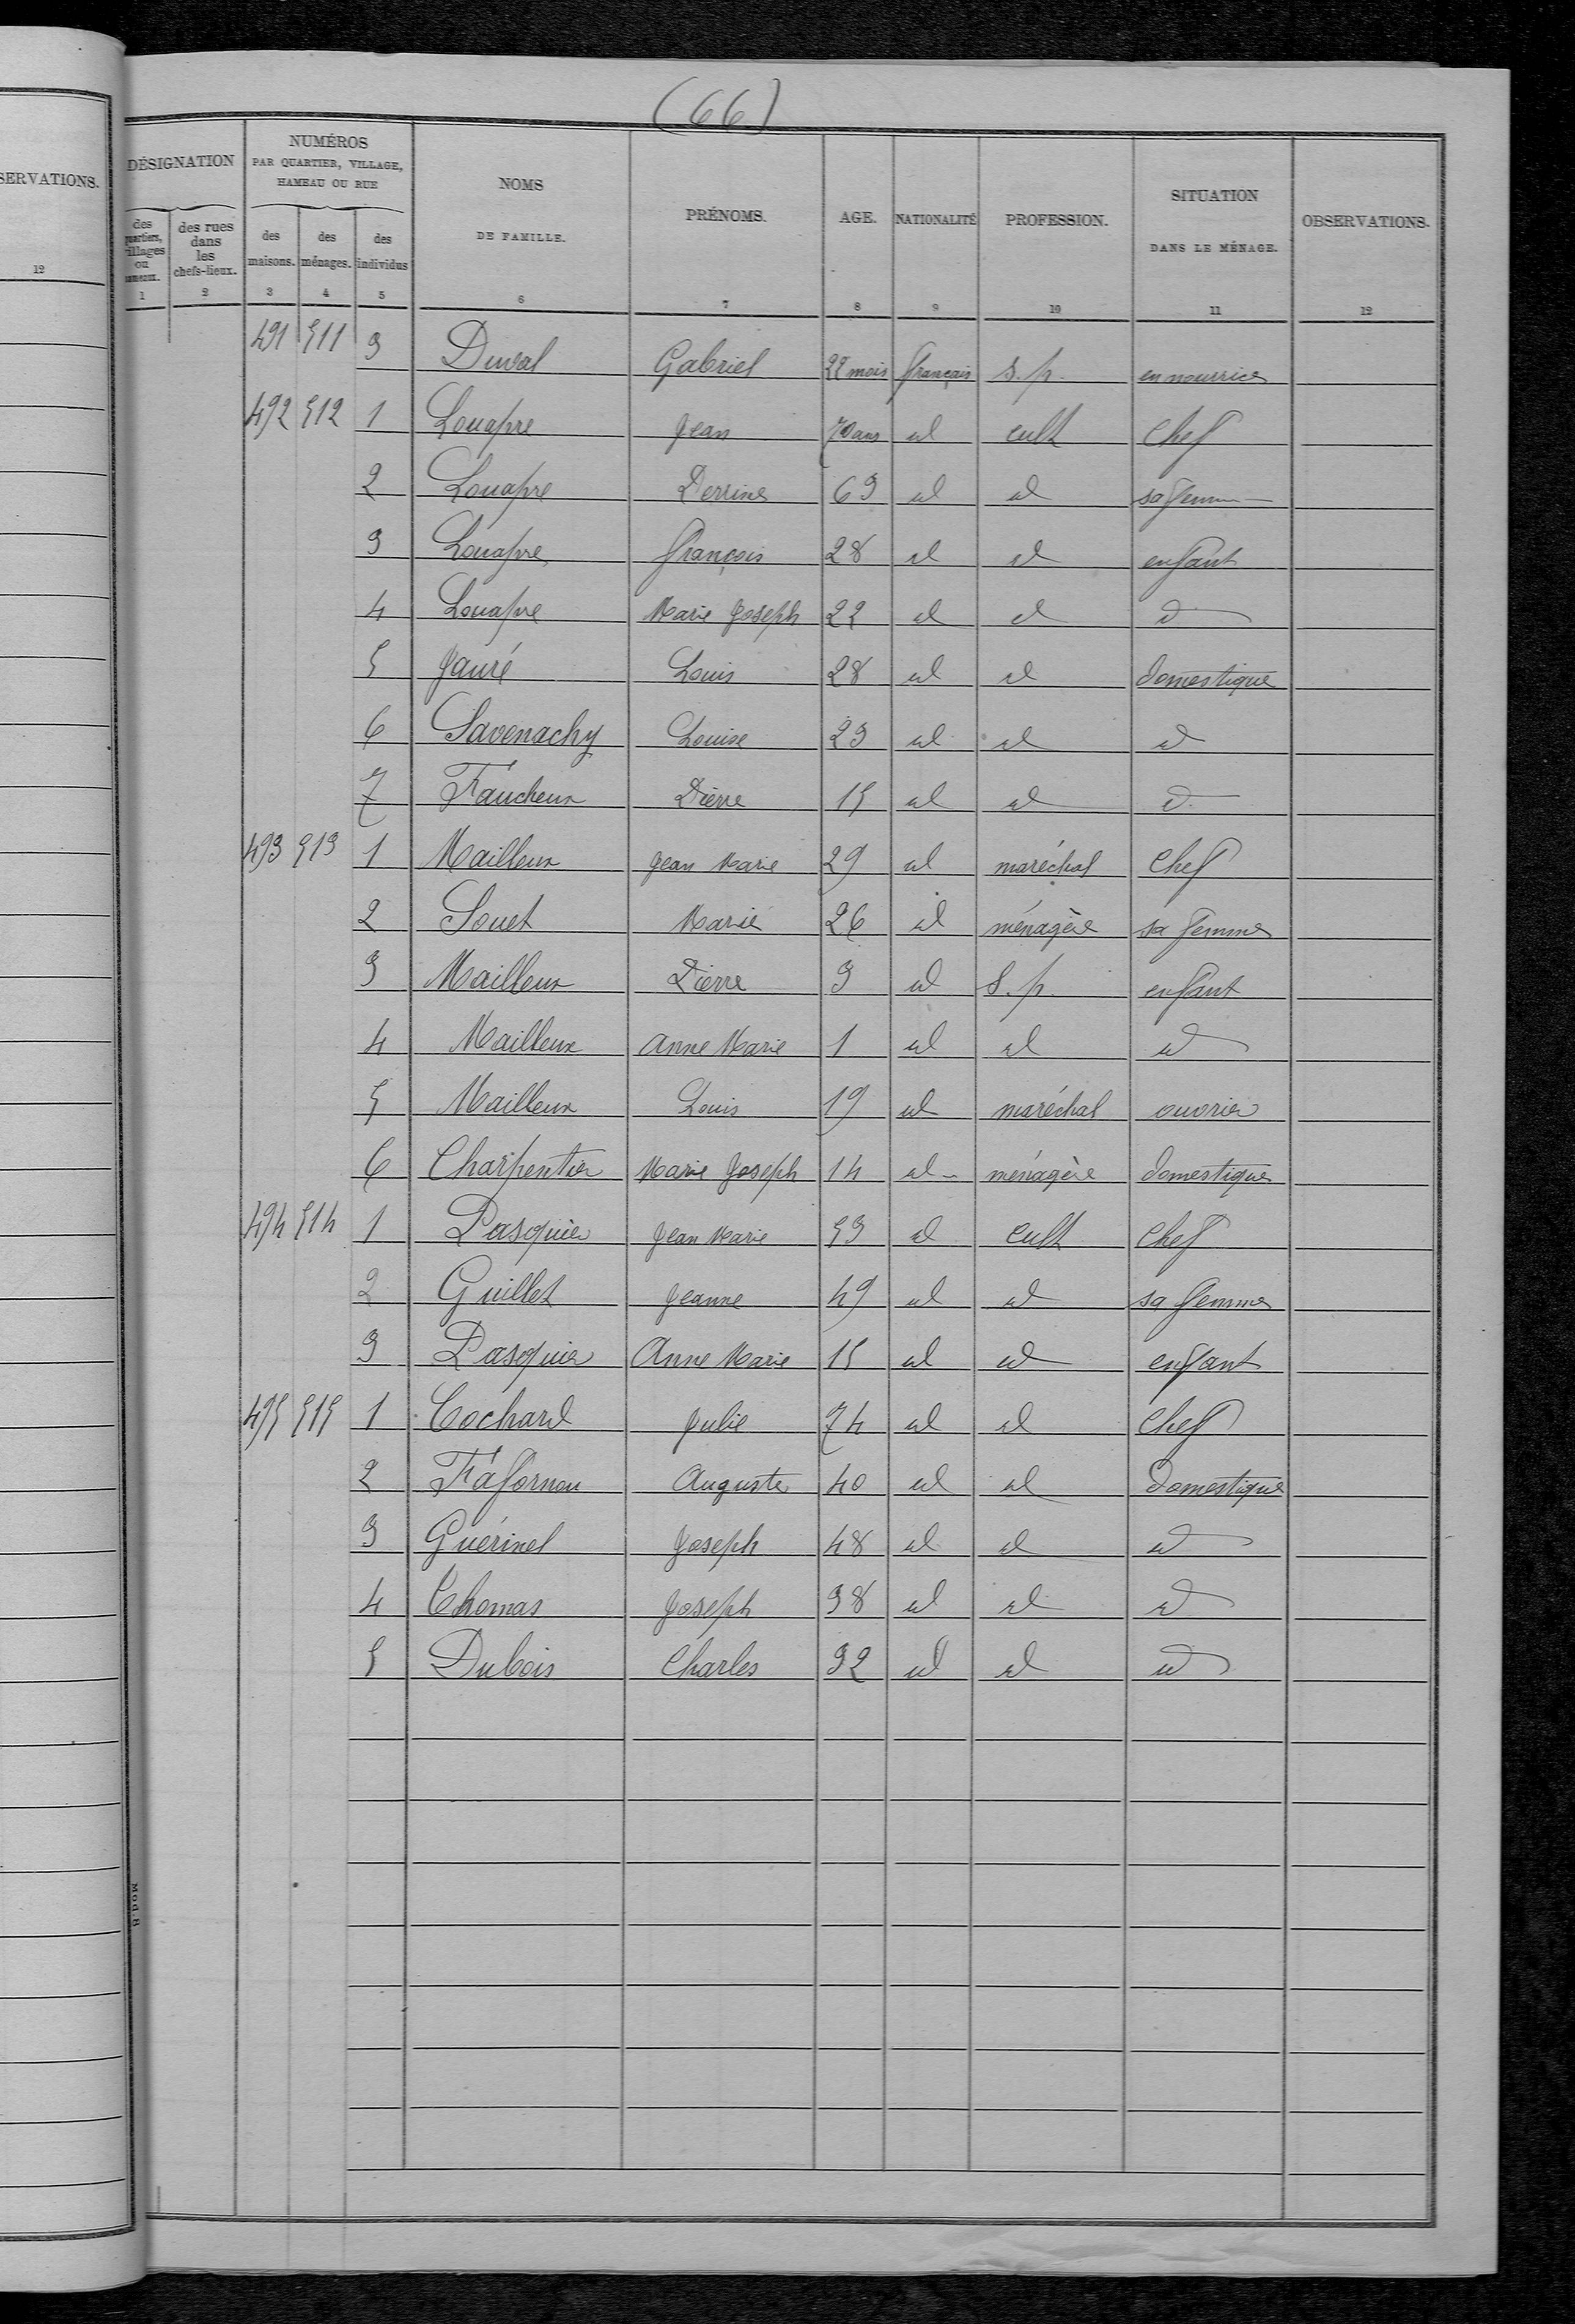 (66)
SERVATIONS.
12
DÉSIGNATION
des quartiers, villages ou hameaux.
1
des rues dans les chefs-lieux.
2
NUMÉROS
PAR QUARTIER, VILLAGE,
HAMEAU OU RUE
des maisons.
3
des ménages.
4
des individus
5
NOMS
DE FAMILLE.
6
PRÉNOMS.
7
AGE.
8
NATIONALITÉ
9
PROFESSION.
10
SITUATION
DANS LE MÉNAGE.
11
OBSERVATIONS.
12
491 511 3 Duval Gabriel 22 mois français s.p. en nourrice
492 512 1 Louapre Jean 70 ans id cult chef
2 Louapre Perrine 63 id id sa femme
3 Louapre françois 28 id id enfant
4 Louapre Marie Joseph 22 id id d
5 Jauré Louis 28 id id domestique
6 Savenachy Louise 23 id id id
7 Faucheux Pierre 15 id id d
493 513 1 Mailleux Jean Marie 29 id maréchal chef
2 Souet Marie 26 id ménagère sa femme
3 Mailleux Pierre 3 id s.p. enfant
4 Mailleux Anne Marie 1 id id id
5 Mailleux Louis 19 id maréchal ouvrier
6 Charpentier Marie Joseph 14 id ménagère domestique
494 514 1 Pasquier Jean Marie 53 id cult chef
2 Guillet Jeanne 49 id id sa femme
3 Pasquier Anne Marie 15 id id enfant
495 515 1 Cochard Julie 74 id id chef
2 Auguste 40 id id domestique
3 Guérinel Joseph 48 id id id
4 Thomas Joseph 38 id id id
5 Dubois Charles 32 id id id
Mod. B